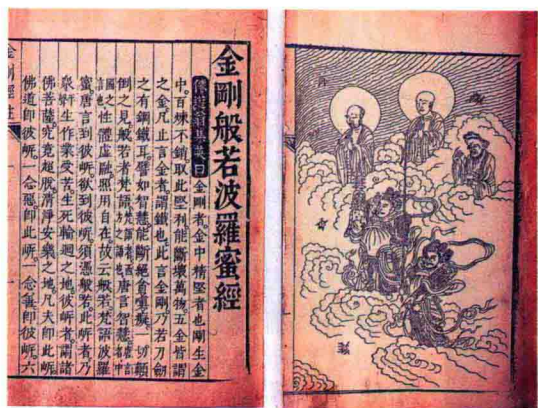 金剛般若波羅蜜經
集英曰金剛者金中精堅者也剛生金
中百煉不銷取此堅利能斷壞萬物五金皆謂
之金凡止言金者謂鐵也此言金剛乃若刀劍
之有鋼鐵耳譬如智慧能斷絕貪嗔癡一切顛
倒之見般若者梵語梵語者西方之語也唐言智慧唐言者中
國之言也性體虛融照用自在故云般若梵語波羅
蜜唐言到彼岸欲到彼岸須憑般若此岸者乃
眾生作業受苦生死輪迴之地彼岸者謂諸
佛菩薩究竟超脫清淨安樂之地凡夫即此岸
佛道即彼岸一念惡即此岸一念善即彼岸六
金剛經註